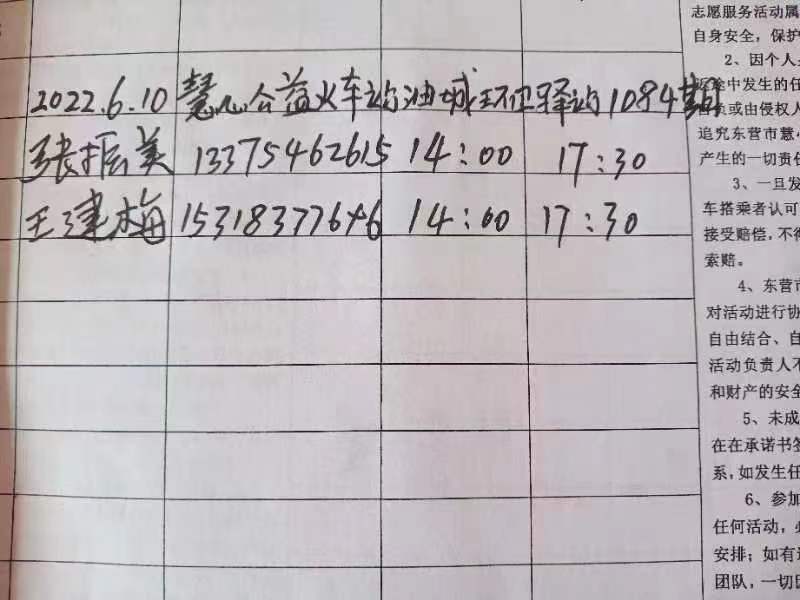 2022.6.10 慧心公益火车站油城环卫驿站1084期
张振美 13375462615 14:00 17:30
王建梅 15318377646 14:00 17:30
志愿服务活动属
自身安全，保护
2、因个人
途中发生的任
负或由侵权人
追究东营市慧
产生的一切责任
3、一旦发
车搭乘者认可
接受赔偿，不得
索赔。
4、东营市
对活动进行协
自由结合、自
活动负责人不
和财产的安全
5、未成
在在承诺书签
系，如发生任
6、参加
任何活动，必
安排；如有
团队，一切